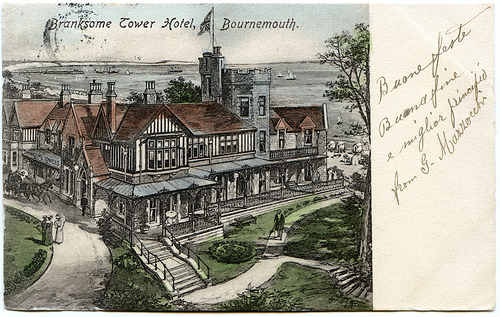 Branksome Tower Hotel, Bournemouth.
Buone feste
Buona fine
e miglior principio
from G. Mazzocchi